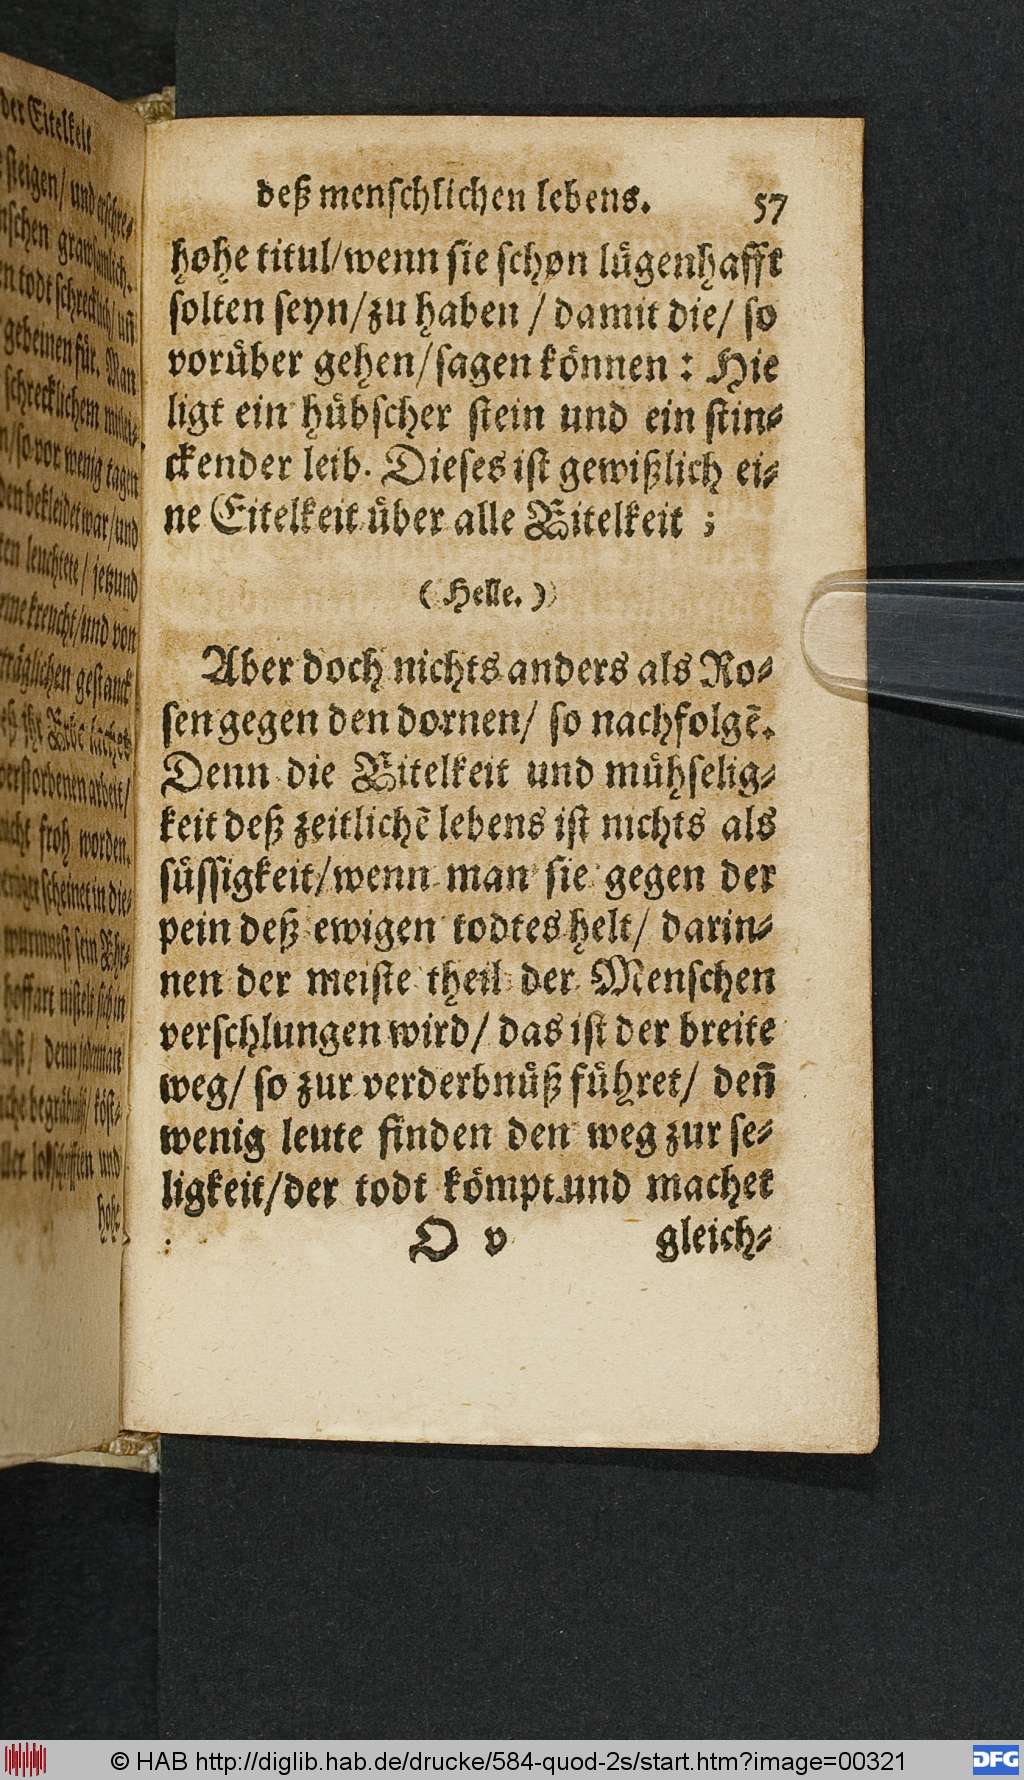 der Eitelkeit
steigen/ und
todt schrecklich/ uñ
gebeinen für. Man
schrecklichem
so vor wenig tagen
bekleidet war/ und
leuchtete/ jetzund
kreucht/ und von
träglichen gestanck
verstorbenen arbeit/
nicht froh worden.
scheinet in die-
hoffart nistelt sich in
denn jederman
begräbnüß/ köst-
und
hohe
deß menschlichen lebens. 57
hohe titul/wenn sie schon lügenhafft
solten seyn/zu haben / damit die/ so
vorüber gehen/sagen können : Hie
ligt ein hübscher stein und ein stin-
ckender leib. Dieses ist gewißlich ei-
ne Eitelkeit über alle Eitelkeit ;
(Helle.)
Aber doch nichts anders als Ro-
sen gegen den dornen/ so nachfolgẽ.
Denn die Eitelkeit und mühselig-
keit deß zeitlichẽ lebens ist nichts als
süssigkeit/wenn man sie gegen der
pein deß ewigen todtes helt/ darin-
nen der meiste theil der Menschen
verschlungen wird/ das ist der breite
weg/ so zur verderbnüß führet/ deñ
wenig leute finden den weg zur se-
ligkeit/der todt kömpt und machet
O v gleich-
© HAB http://diglib.hab.de/drucke/584-quod-2s/start.htm?image=00321
DFG